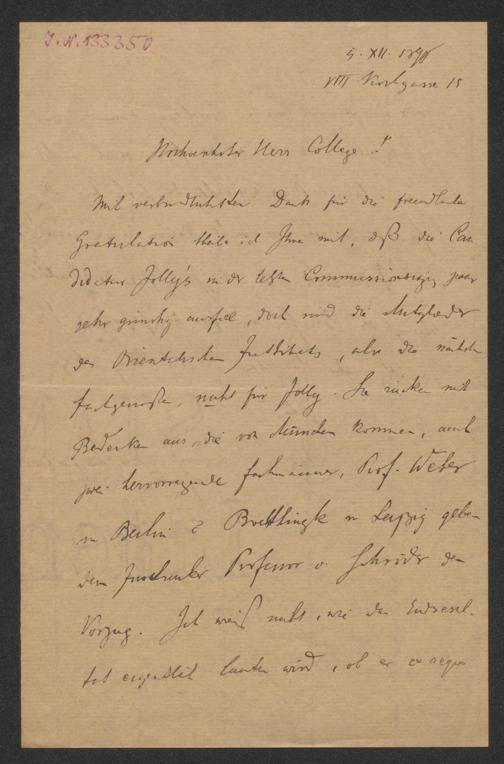 I.N. 133350
5. XII. 189
VIII Kochgasse 15
Hochverehrter Herr College!
Mit verbindlichstem Dank für die freundliche
Gratulation theile ich Ihnen mit, daß die Can
didatur Jolly's in der letzten Commissionssitzg zwar
sehr günstig ausfiel, doch sind die Mitglieder
des Orientalischen Instituts, also die nächsten
Fachgenossen, nicht für Jolly. Sie rücken mit
Bedenken aus, die von München kommen, auch
zwei hervorragende Fachmänner, Prof. Weber
in Berlin & Boethlingk in Leipzig geben
dem Innsbrucker Professor v. Schröder den
Vorzug. Ich weiß nicht, wie das Endresul-
tat eigentlich lauten wird, ob er ex aequo